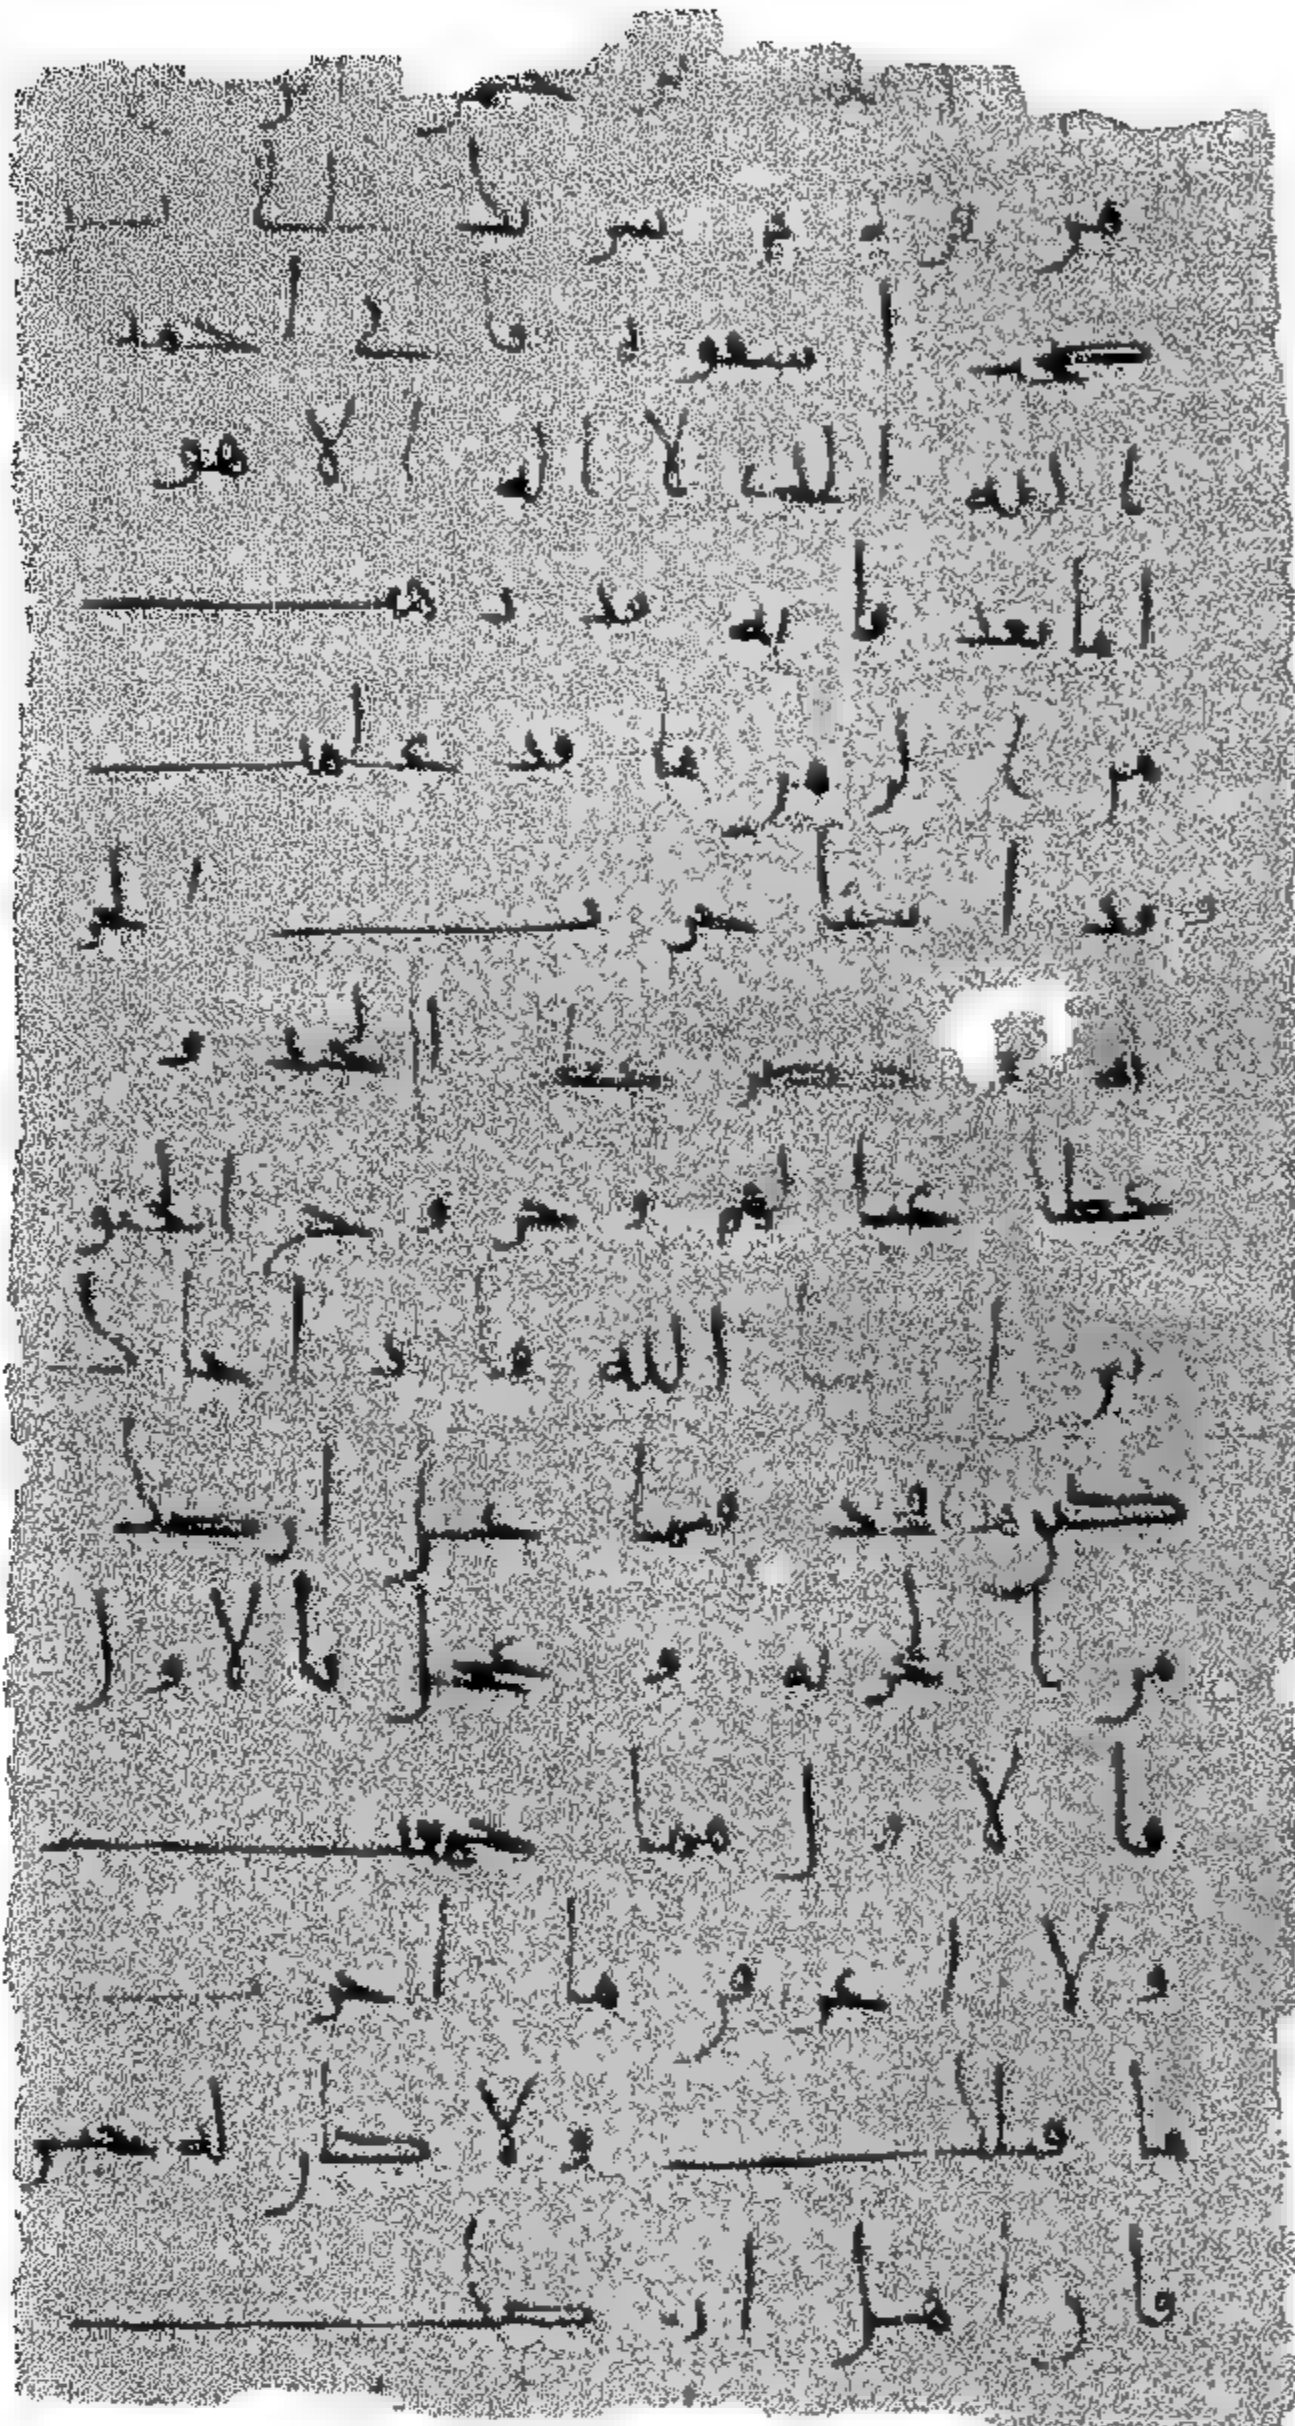 من قرة بن شريك الى بسيل
صحب اشقوه فاني احمد
الله الذي لا اله الا هو
اما بعد فانه قد ذهب
من الزمن ما قد علمت
وقد استاخرت الجز
ية و حضر عطا الجند و
عطا عيالهم وخروج الجيو
ان شا الله فاذا جاك
كتبي فخذ فيما على ارضك
من الجزية وعجل بالاول
فالاول مما جمعت
ولا اعرفن ما اخرت
ما قبلك ولا
فان اهل ارضك